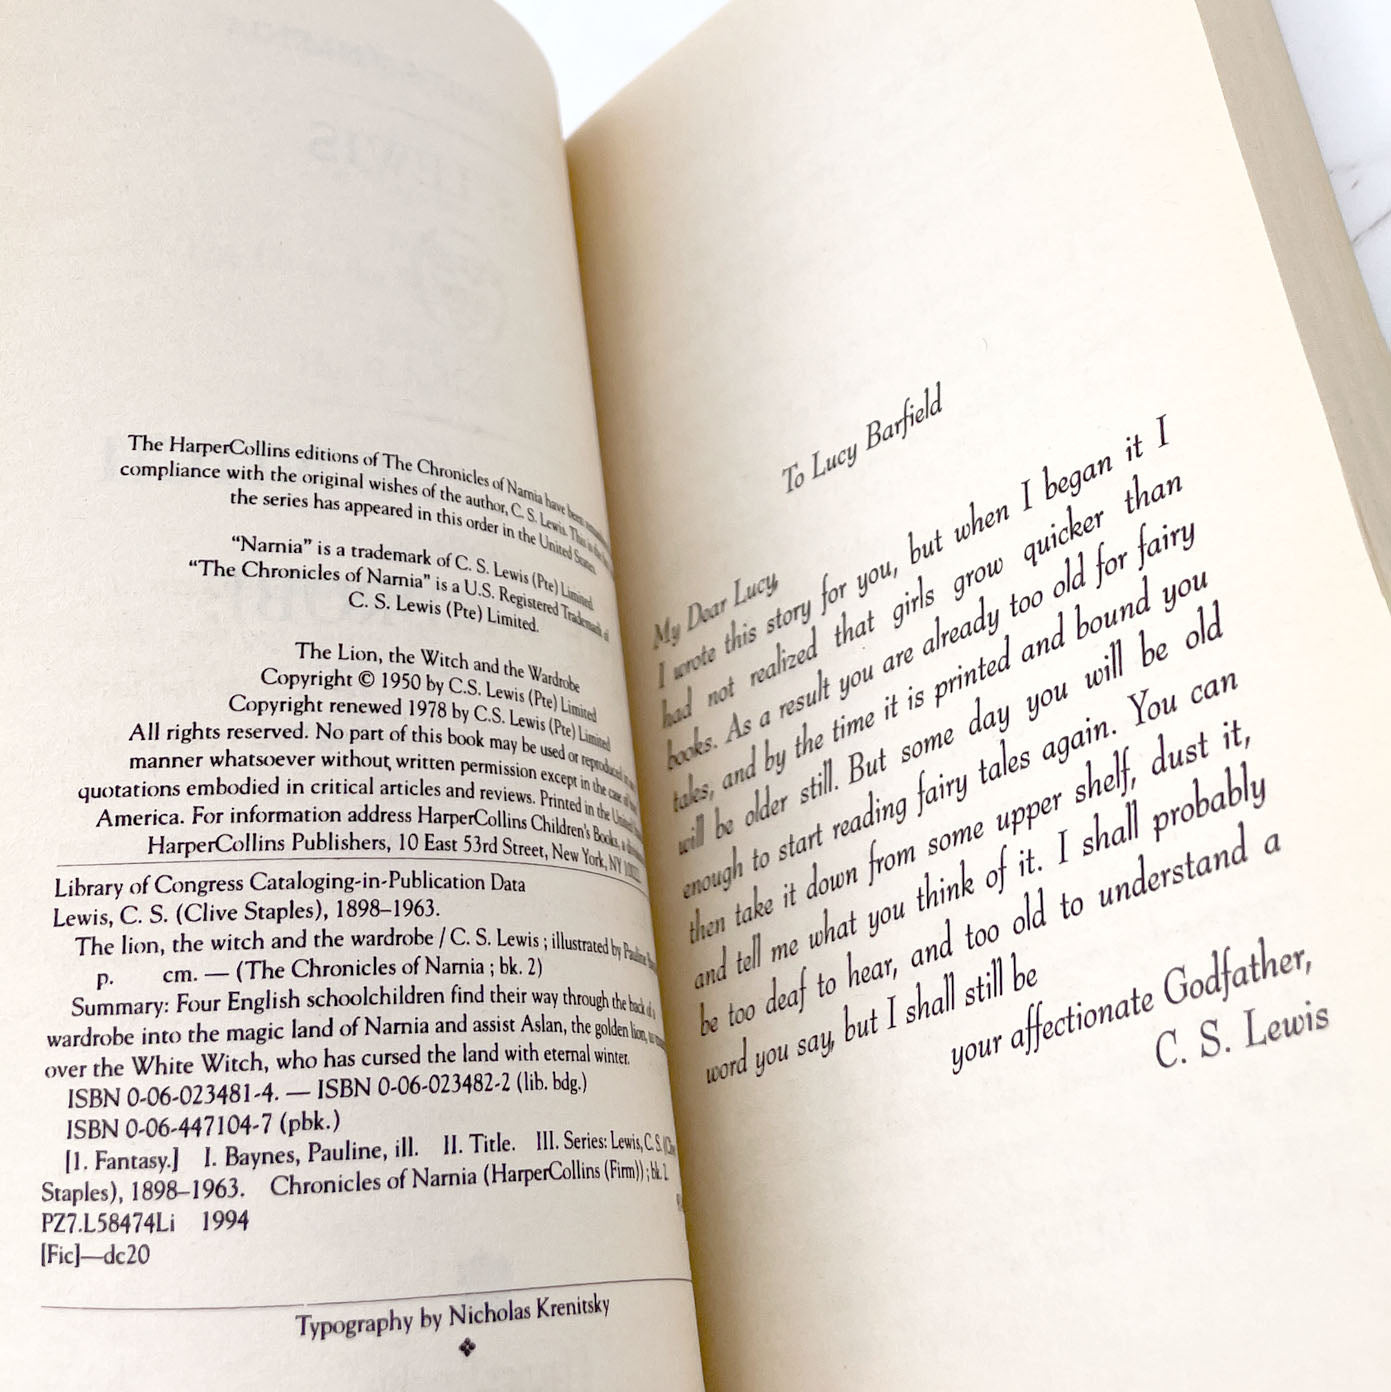 The HarperCollins editions of The Chronicles of Narnia have been
compliance with the original wishes of the author, C. S. Lewis. This is the
the series has appeared in this order in the United States.
“Narnia” is a trademark of C. S. Lewis (Pte) Limited.
“The Chronicles of Narnia” is a U.S. Registered Trademark of
C. S. Lewis (Pte) Limited.
The Lion, the Witch and the Wardrobe
Copyright © 1950 by C.S. Lewis (Pte) Limited
Copyright renewed 1978 by C.S. Lewis (Pte) Limited
All rights reserved. No part of this book may be used or reproduced in
manner whatsoever without written permission except in the case of
quotations embodied in critical articles and reviews. Printed in the United
America. For information address HarperCollins Children's Books, a
HarperCollins Publishers, 10 East 53rd Street, New York, NY
Library of Congress Cataloging-in-Publication Data
Lewis, C. S. (Clive Staples), 1898–1963.
The lion, the witch and the wardrobe / C. S. Lewis ; illustrated by Pauline
p. cm. — (The Chronicles of Narnia ; bk. 2)
Summary: Four English schoolchildren find their way through the back of a
wardrobe into the magic land of Narnia and assist Aslan, the golden lion,
over the White Witch, who has cursed the land with eternal winter.
ISBN 0-06-023481-4. — ISBN 0-06-023482-2 (lib. bdg.)
ISBN 0-06-447104-7 (pbk.)
[1. Fantasy.] I. Baynes, Pauline, ill. II. Title. III. Series: Lewis, C. S.
Staples), 1898–1963. Chronicles of Narnia (HarperCollins (Firm)) ; bk. 2.
PZ7.L58474Li 1994
[Fic]—dc20
Typography by Nicholas Krenitsky
To Lucy Barfield
My Dear Lucy,
I wrote this story for you, but when I began it I
had not realized that girls grow quicker than
books. As a result you are already too old for fairy
tales, and by the time it is printed and bound you
will be older still. But some day you will be old
enough to start reading fairy tales again. You can
then take it down from some upper shelf, dust it,
and tell me what you think of it. I shall probably
be too deaf to hear, and too old to understand a
word you say, but I shall still be
your affectionate Godfather,
C. S. Lewis